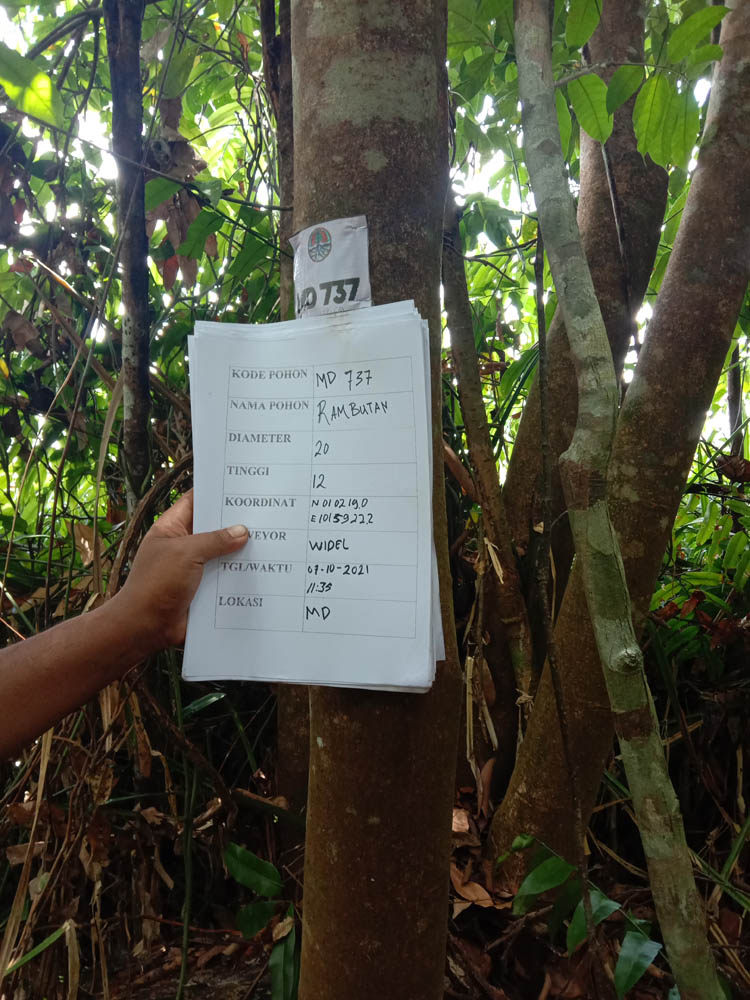 MD 737
KODE POHON MD 737
NAMA POHON RAMBUTAN
DIAMETER 20
TINGGI 12
KOORDINAT N 01 02 19.0
E 101 59 22.2
VEYOR WIDEL
TGL/WAKTU 07-10-2021
11:35
LOKASI MD